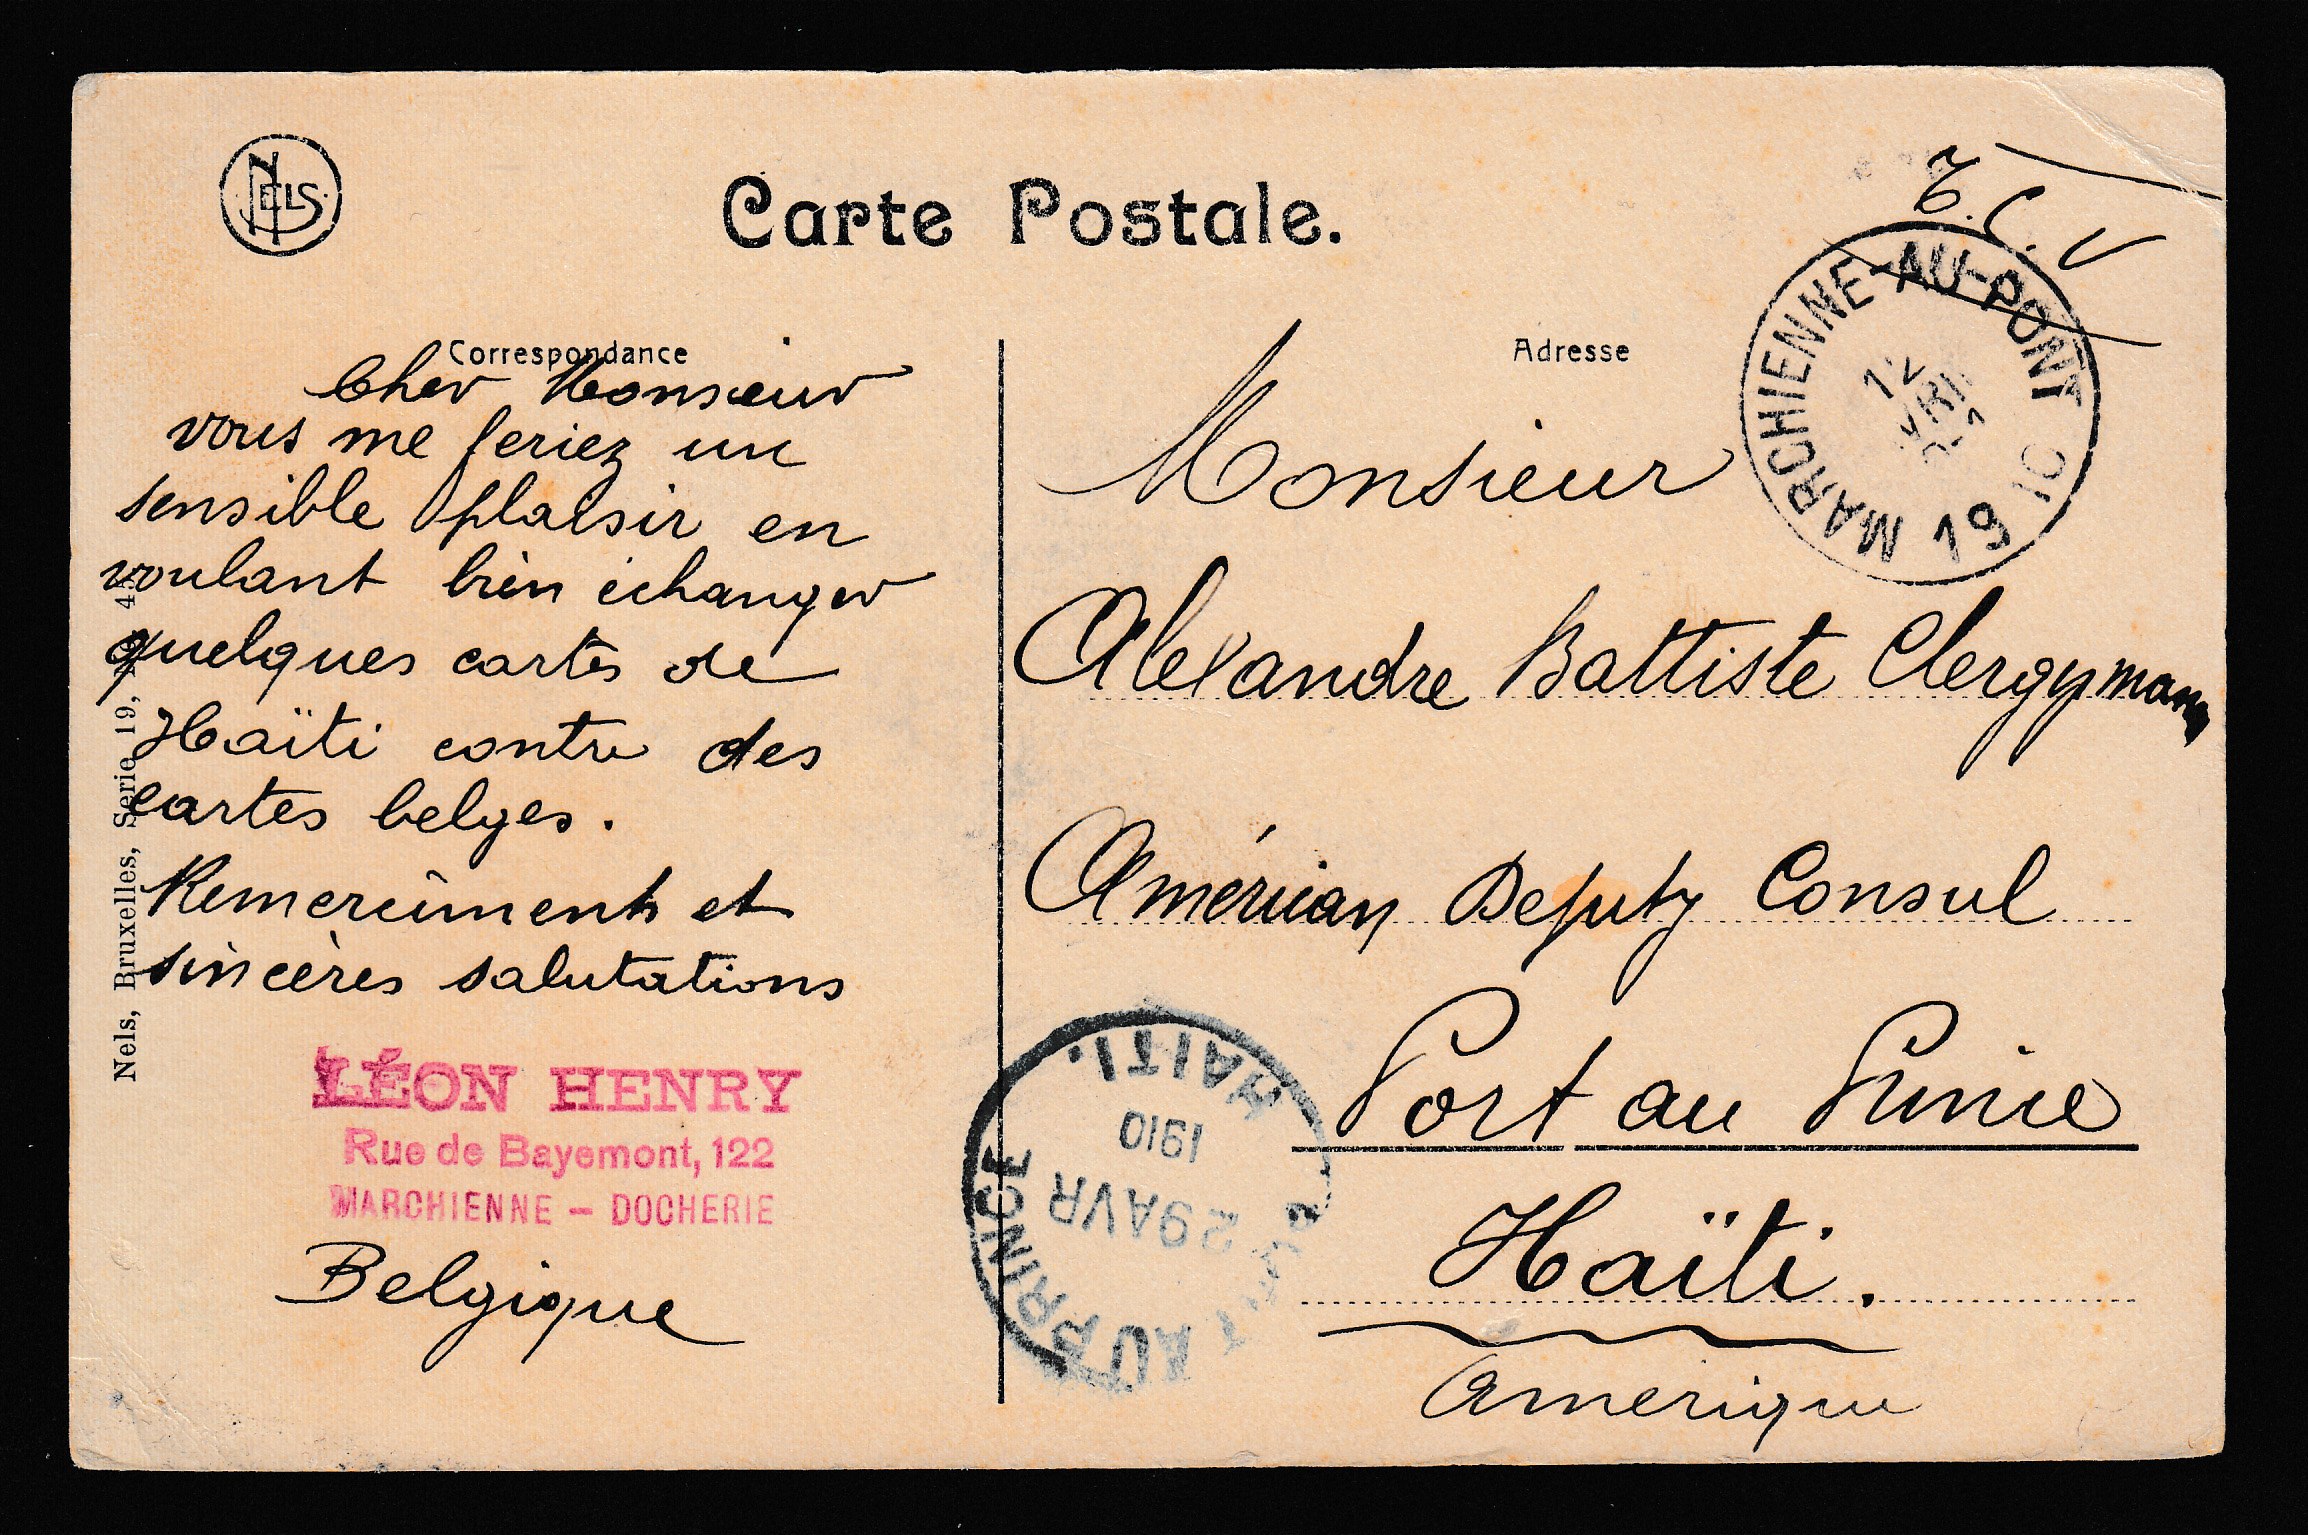 NELS
Carte Postale.
T.C.V
Correspondance
Cher Monsieur
vous me feriez un
sensible plaisir en
voulant bien échanger
quelques cartes de
Haïti contre des
cartes belges.
Remerciments et
sincères salutations
LÉON HENRY
Rue de Bayemont, 122
MARCHIENNE - DOCHERIE
Belgique
Nels, Bruxelles, Serie 19,
Adresse
Monsieur
Alexandre Battiste Clergyman
Américan Deputy Consul
Port au Prince
Haïti.
Amerique
MARCHIENNE-AU-PONT
19 10
AU PRINCE
HAITI.
29 AVR
1910